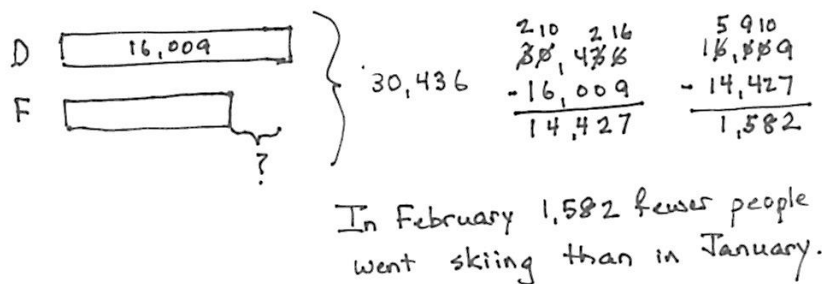 D 16,009
F
?
30,436
2 10 2 16
30,436
-16,009
14,427
5 9 10
16,009
- 14,427
1,582
In February 1,582 fewer people
went skiing than in January.